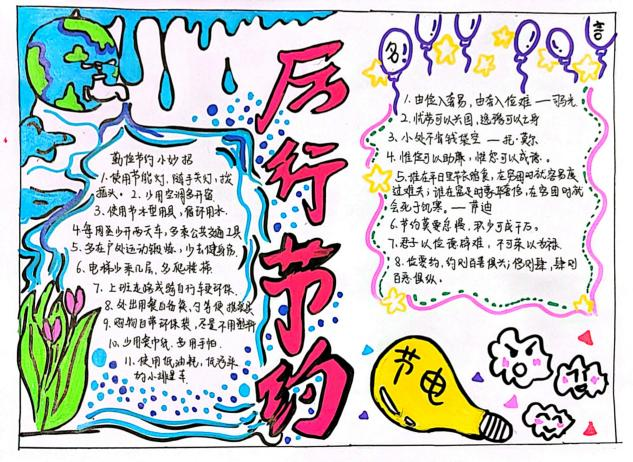 厉行节约
勤俭节约小妙招
1.使用节能灯,随手关灯,拔
插头。2.少用空调多开窗
3.使用节水型用具,循环用水.
4.每周至少开两天车,多乘公共交通工具
5.多在户外运动锻炼,少去健身房.
6.电梯少乘几层,多爬楼梯
7.上班走路或骑自行车更环保.
8.外出用餐自备筷,勺等便携餐具
9.购物自带环保袋,尽量不用塑料
10.少用餐巾纸,多用手帕.
11.使用低油耗,低污染
的小排量车
名言
1.由俭入奢易,由奢入俭难
2.忧劳可以兴国,逸豫可以亡身
3.小处不省钱袋空
4.惟俭可以助廉,惟恕可以成德。
5.谁在平日里节衣缩食,在穷困时就容易度
过难关;谁在富足时豪华奢侈,在穷困时就
会死于饥寒。——萨迪
6.节约莫怠慢,积少可成千万。
7.君子以俭德辟难,不可荣以禄.
8.俭,约,约则百善俱兴;侈则肆,肆则
百恶俱纵.
节电